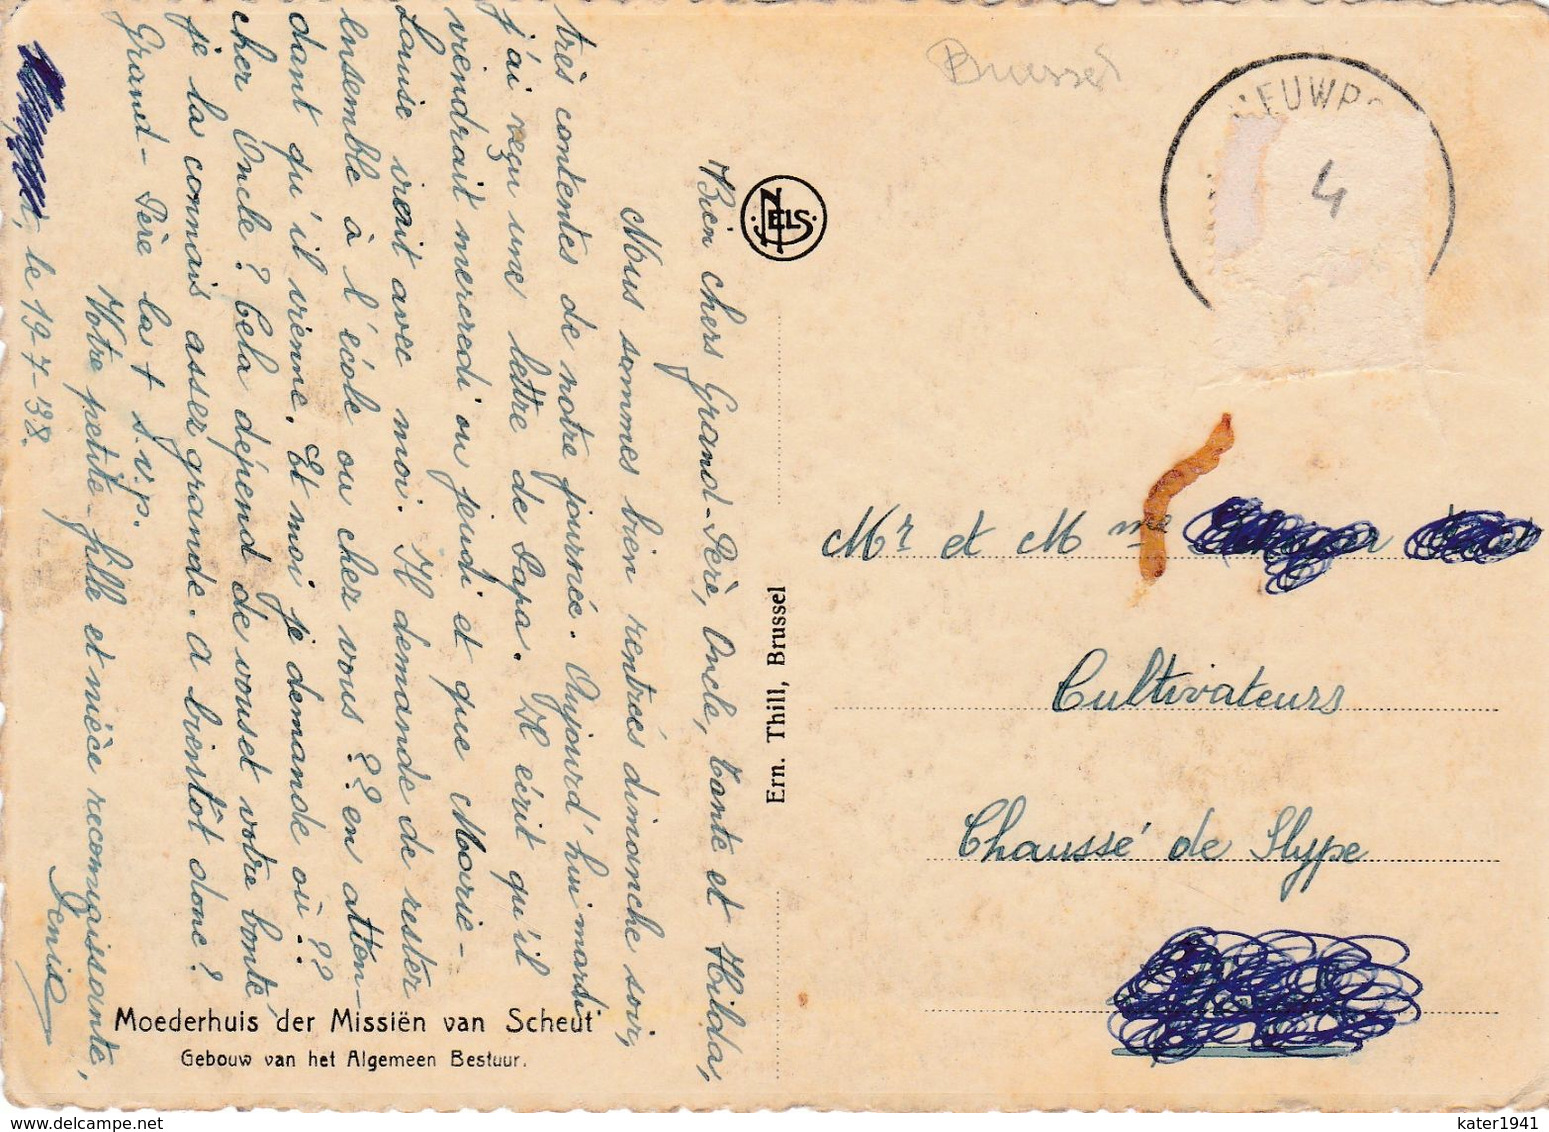 Brussel
NIEUWPO
4
NELS
Bien chers Grand-Père, Oncle, Tante et Hilda,
Nous sommes bien rentrés dimanche soir,
très contentes de notre journée. Aujourd'hui mardi
j'ai reçu une lettre de Papa. Il écrit qu'il
viendrait mercredi ou jeudi et que Marie-
Louise irait avec moi. Il demande de rester
ensemble à l'école ou chez vous ? ? en atten-
dant qu'il vienne. Et moi je demande où ??
cher Oncle ? Cela dépend de vous et votre bonté
je la connais assez grande. A bientôt donc ?
Grand-Père la + s.v.p.
Votre petite-fille et nièce reconnaissante,
Denise
, le 19-7-38.
Ern. Thill, Brussel
Mr et Mme
Cultivateurs
Chaussé de Slype
Moederhuis der Missiën van Scheut
Gebouw van het Algemeen Bestuur.
delcampe.net
kater1941